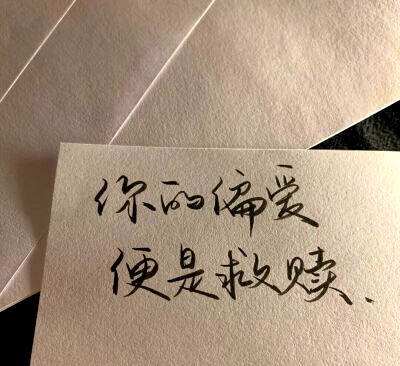 你的偏爱
便是救赎.